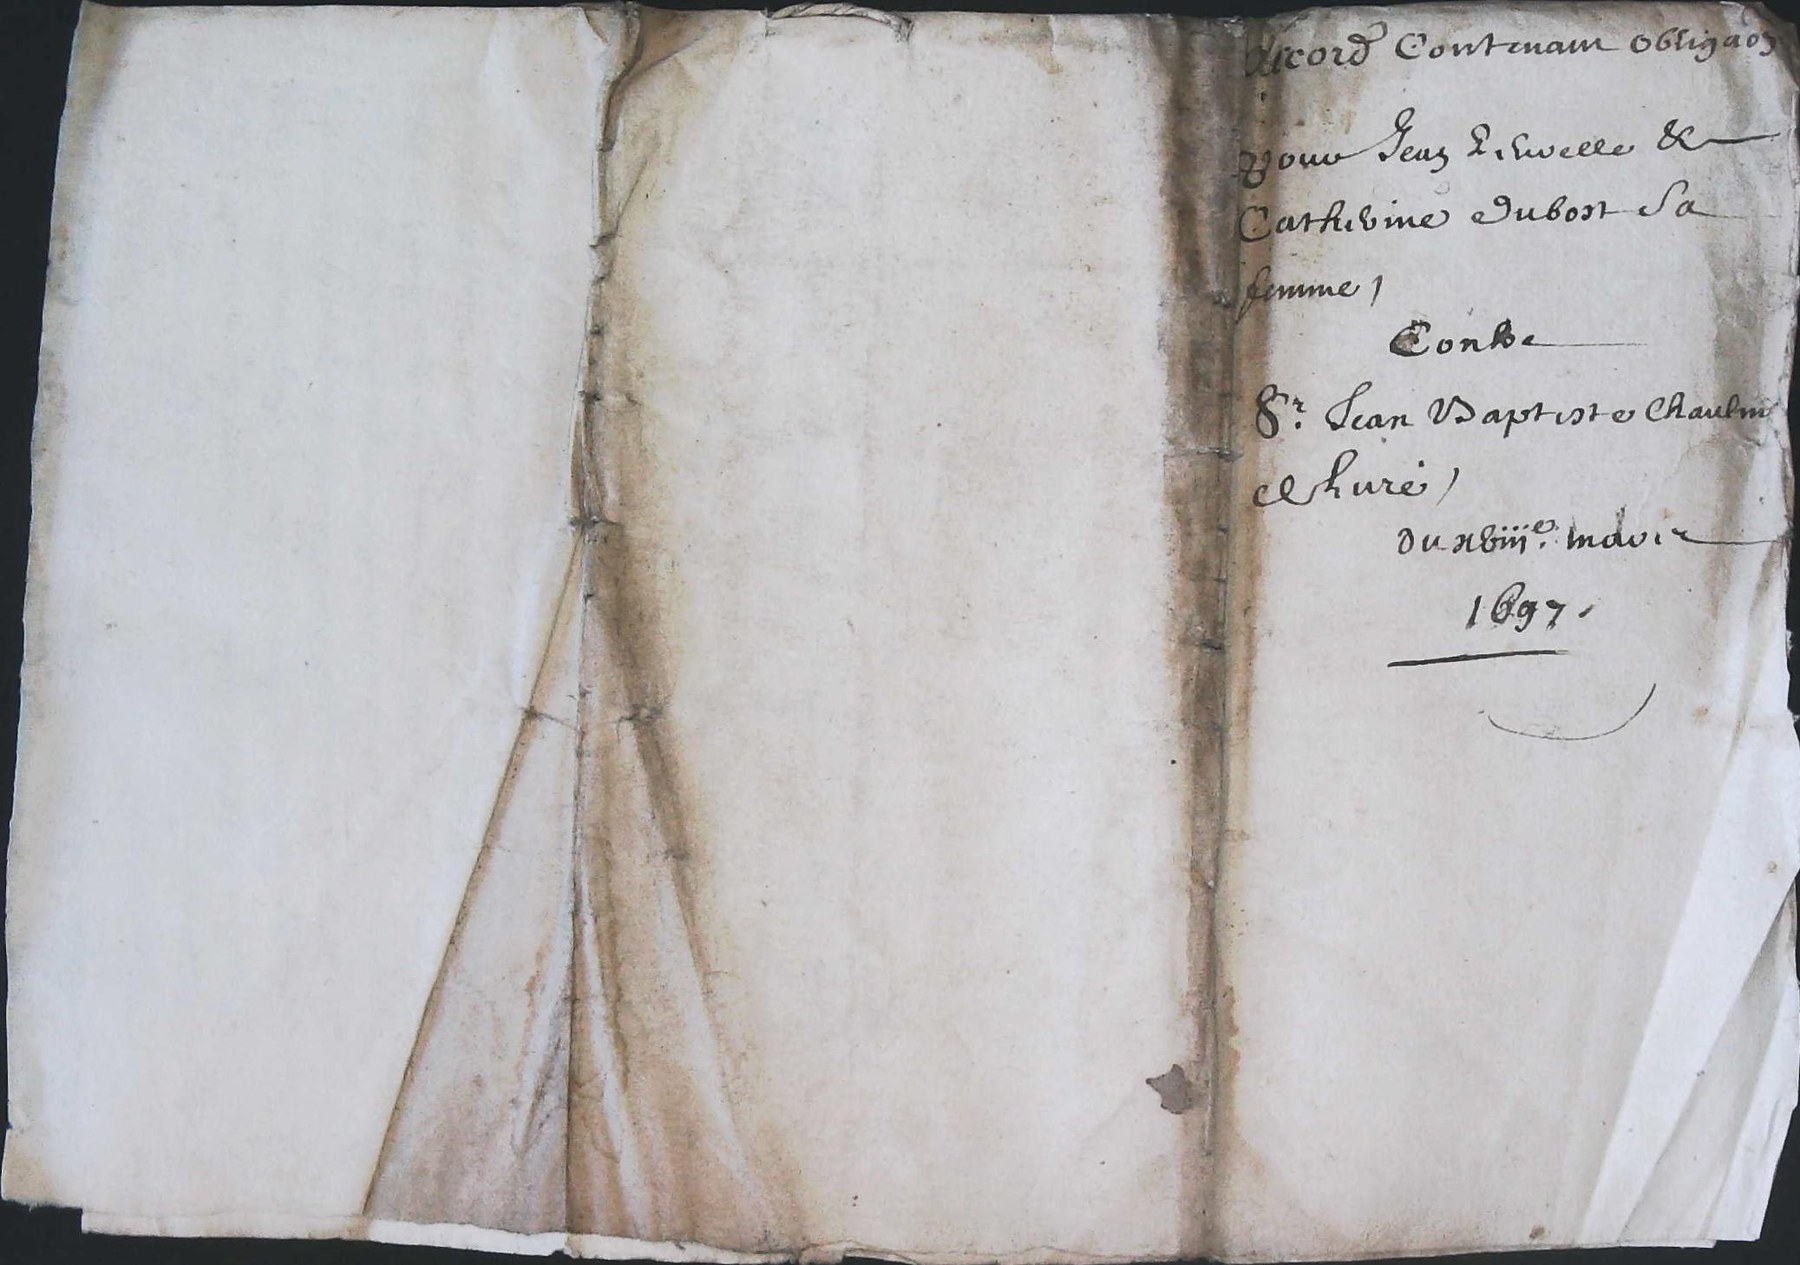 Accord Contenant obligaon
pour Jean &
Catherine dubost Sa
femme,
Contre
Sr. Jean Baptiste Chaulm
du xviiie. mars
1697.